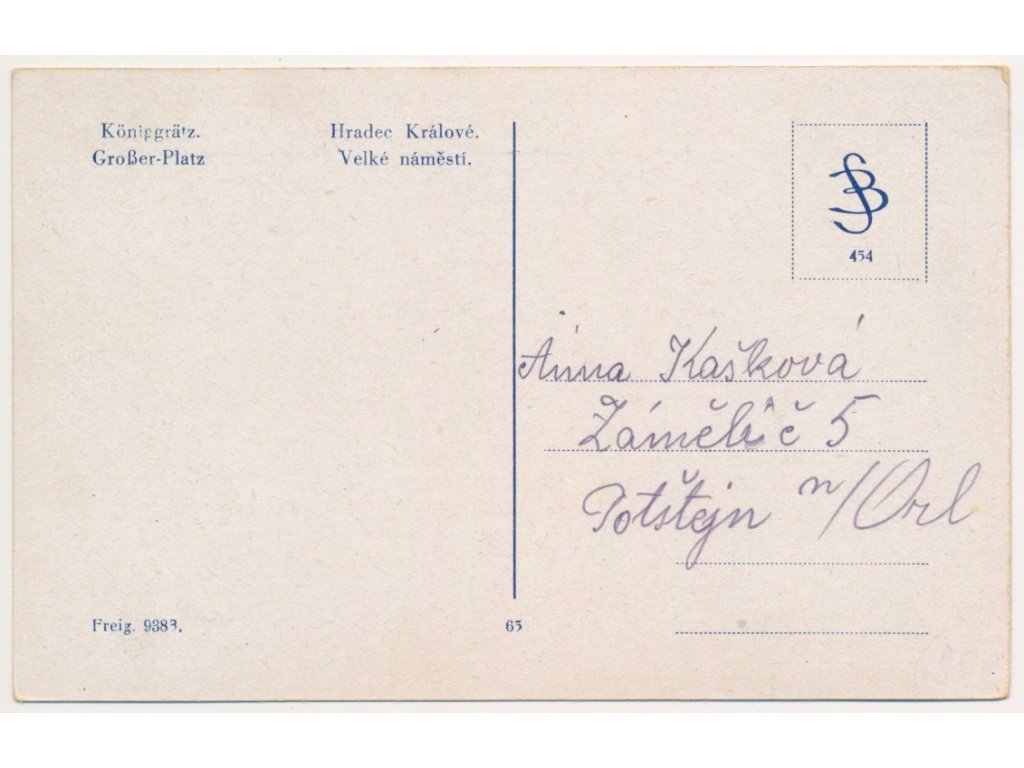 Königgrätz.
Großer-Platz
Hradec Králové.
Velké náměstí.
454
Anna Kašková
Zámělič 5
Potštejn n/Orl
Freig. 9383.
65